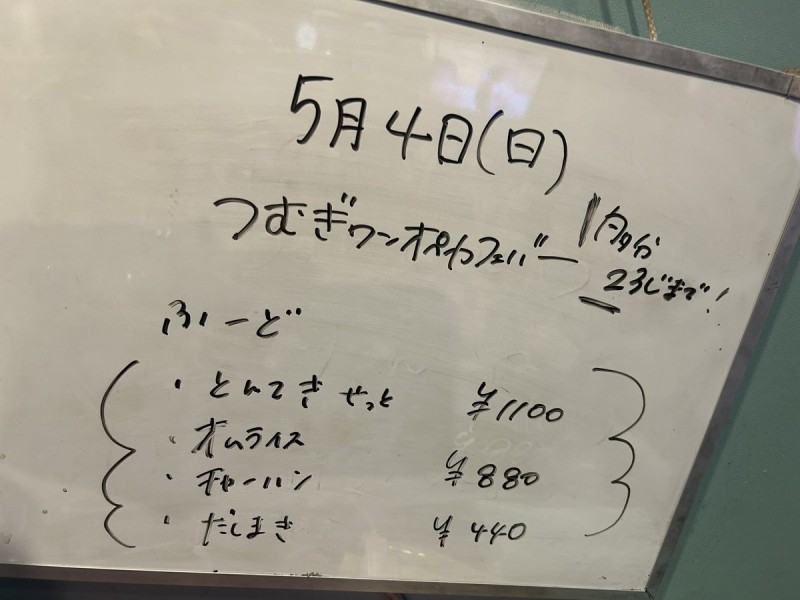 5月4日(日)
つむぎワンオペカフェバー
多分
23じまで!
ふーど
・とんてきせっと ¥1100
・オムライス
・チャーハン ¥880
・だしまき ¥440